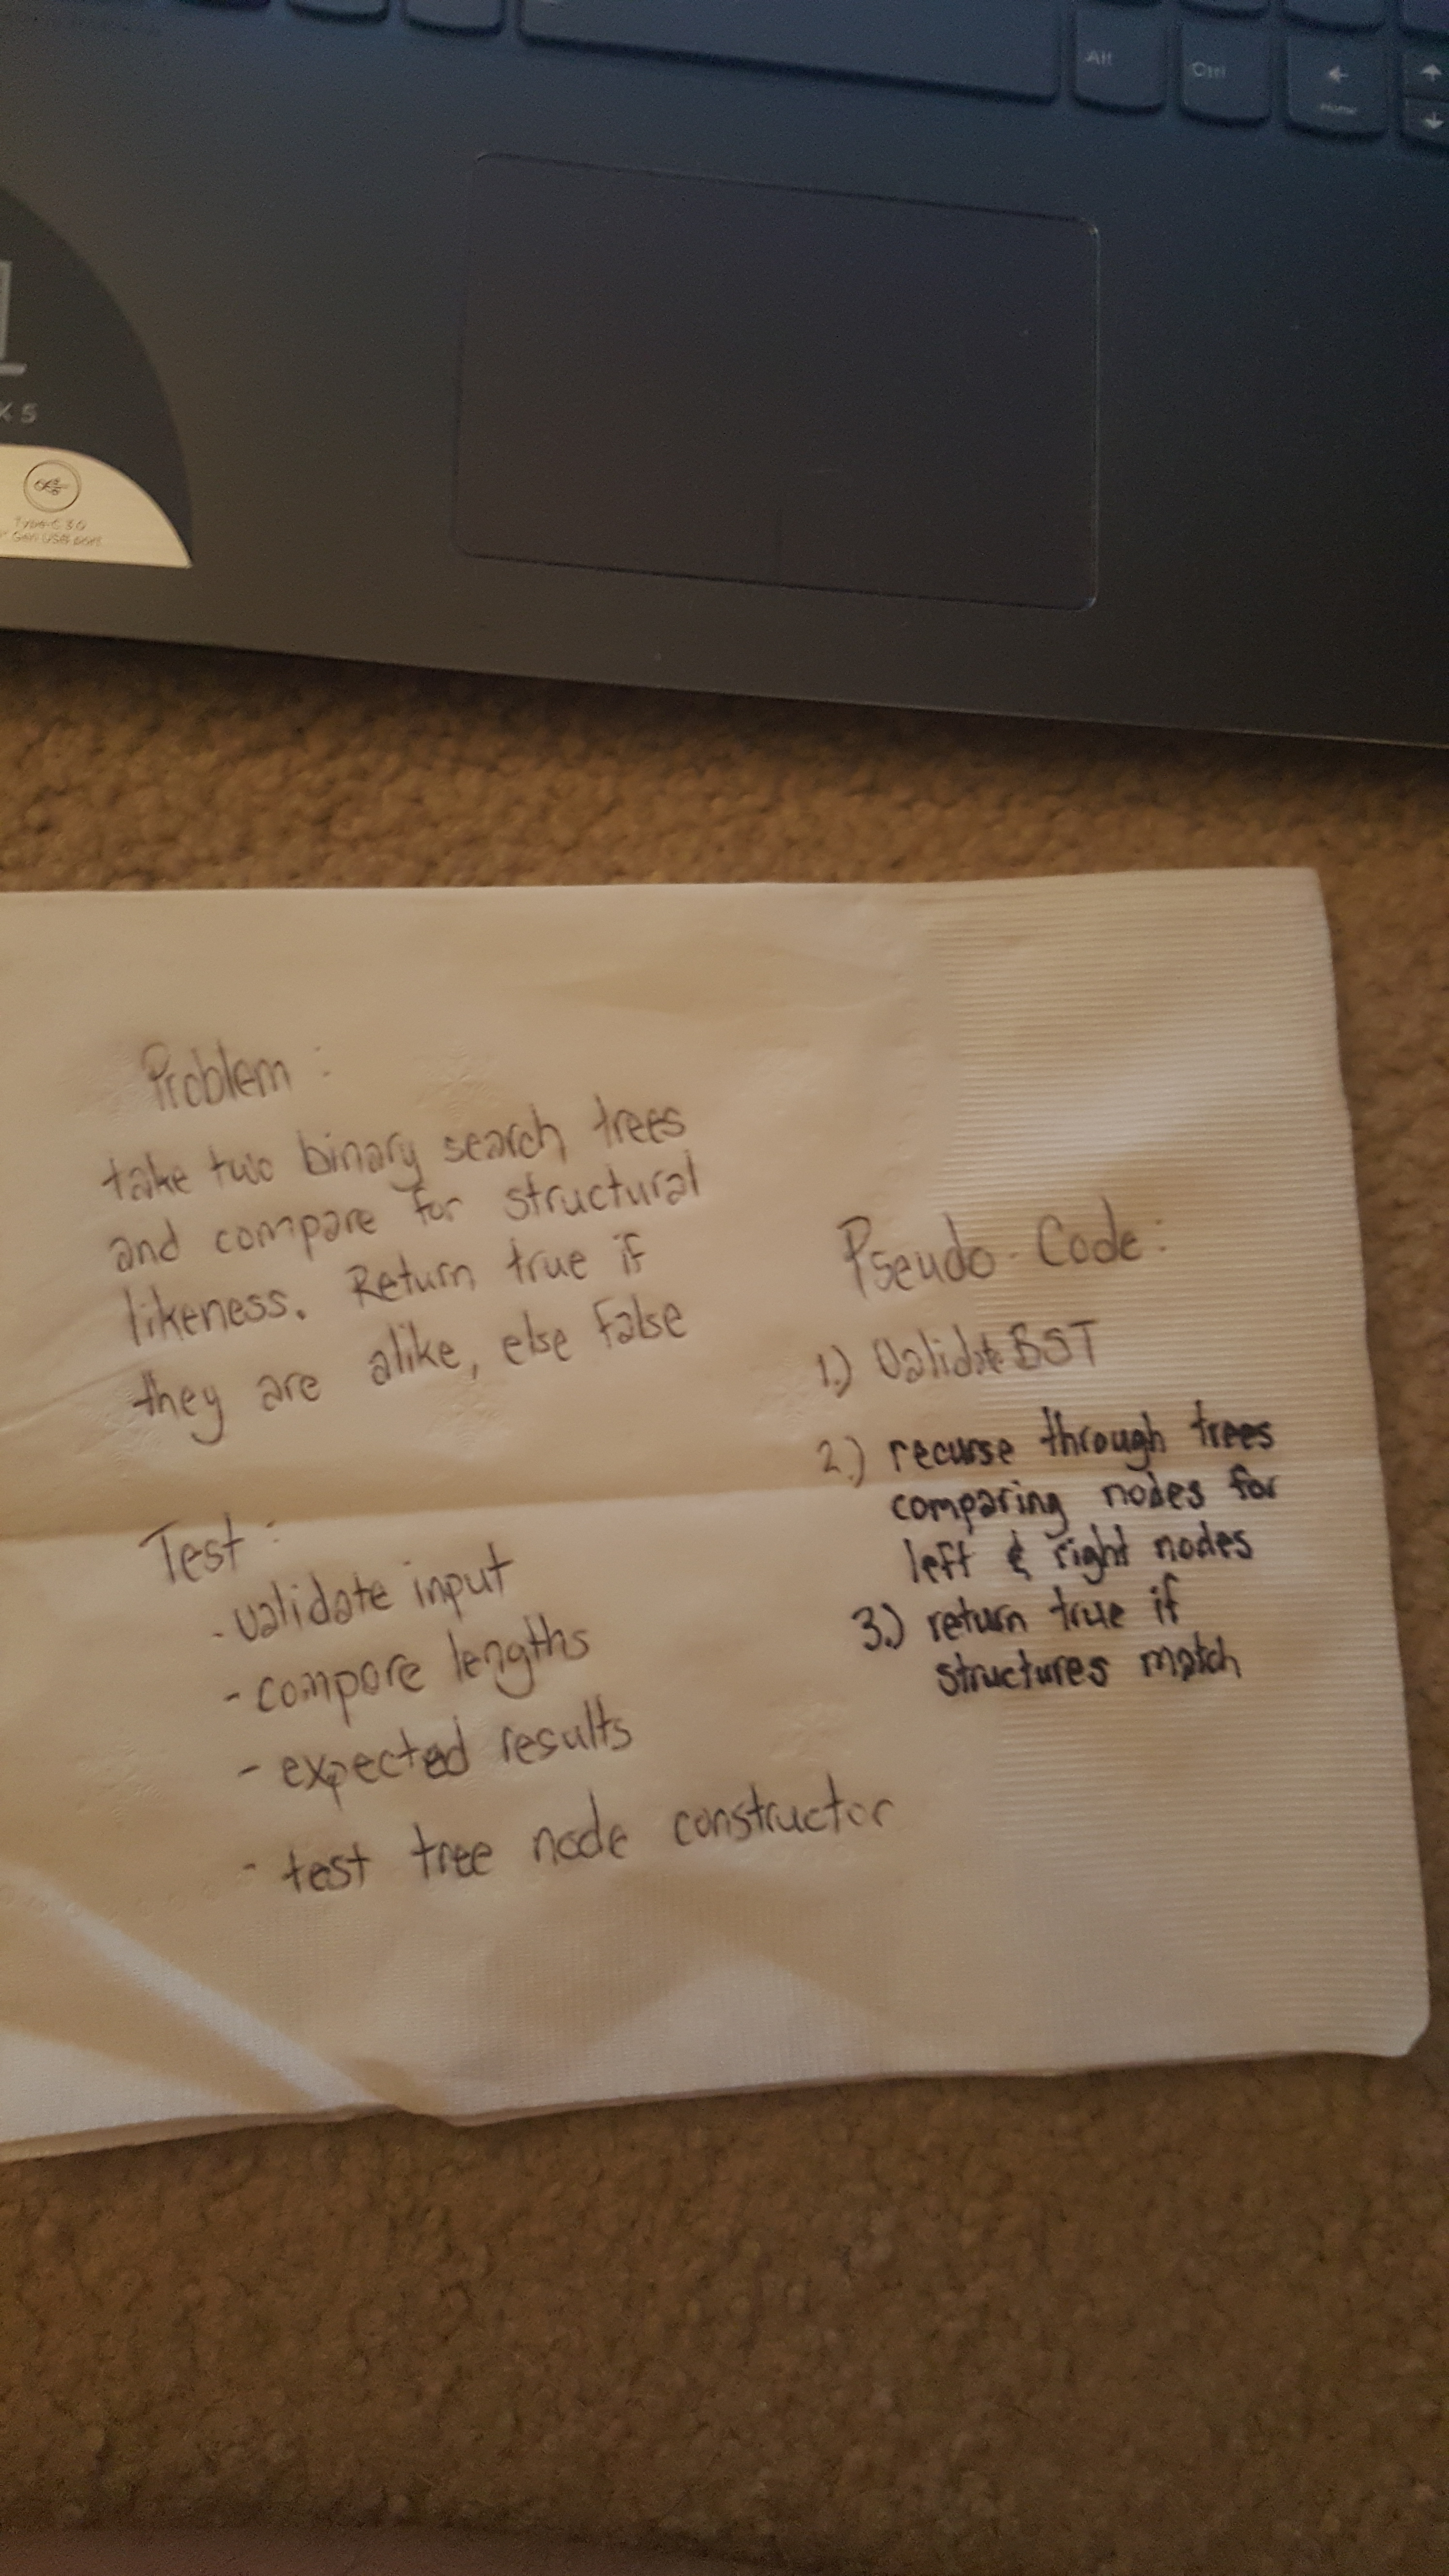 Alt
Ctrl
Home
K 5
Type-C 3.0
Gen USB port
Problem :
take two binary search trees
and compare for structural
likeness. Return true if
they are alike, else false
Test :
- validate input
- compare lengths
- expected results
- test tree node constructor
Pseudo-Code :
1.) Validate BST
2.) recurse through trees
comparing nodes for
left & right nodes
3.) return true if
structures match